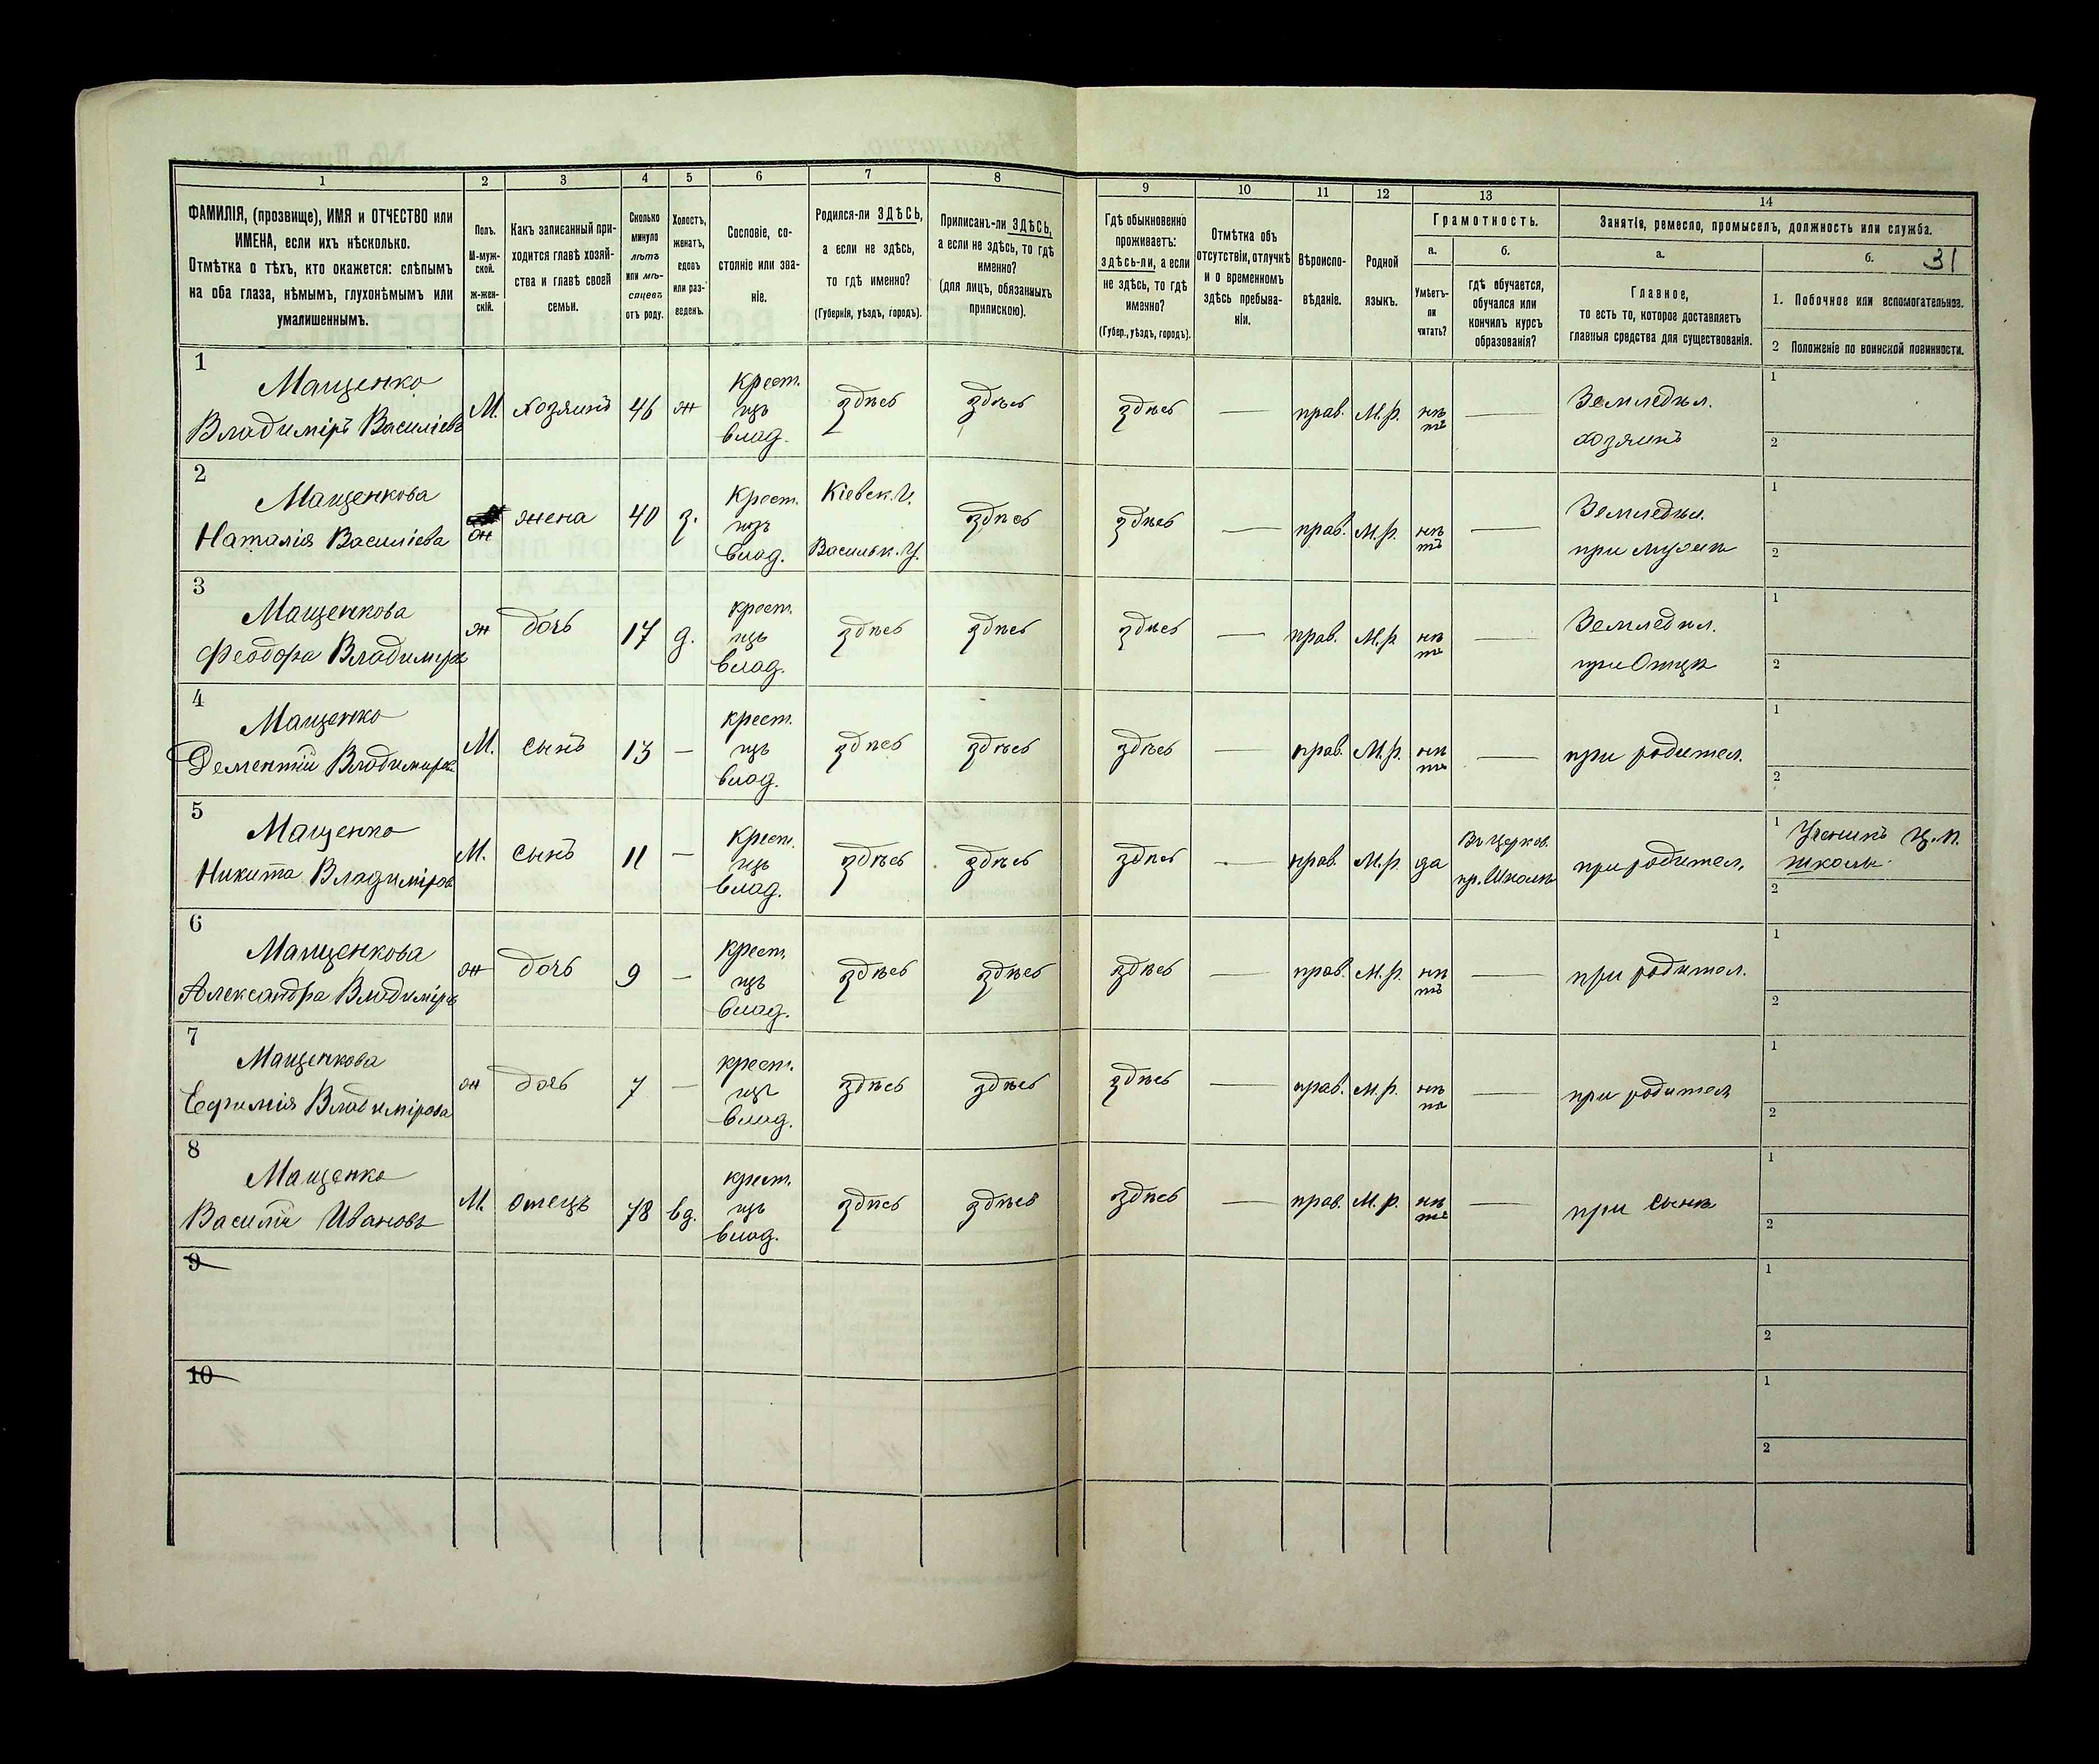 1 2 3 4 5 6 7 8 9 10 11 12 13 14
31
ФАМИЛІЯ, (прозвище), ИМЯ и ОТЧЕСТВО или
ИМЕНА, если ихъ нѣсколько.
Отмѣтка о тѣхъ, кто окажется: слѣпымъ
на оба глаза, нѣмымъ, глухонѣмымъ или
умалишеннымъ.
Полъ.
М-муж-
ской.
Ж-жен-
скій.
Какъ записанный при-
ходится главѣ хозяй-
ства и главѣ своей
семьи.
Сколько
минуло
лѣтъ
или мѣ-
сяцевъ
отъ роду.
Холостъ,
женатъ,
вдовъ
или раз-
веденъ.
Сословіе, со-
стояніе или зва-
ніе.
Родился-ли ЗДѢСЬ,
а если не здѣсь,
то гдѣ именно?
(Губернія, уѣздъ, городъ).
Приписанъ-ли ЗДѢСЬ,
а если не здѣсь, то гдѣ
именно?
(для лицъ, обязанныхъ
припискою).
Гдѣ обыкновенно
проживаетъ:
здѣсь-ли, а если
не здѣсь, то гдѣ
именно?
(Губер., уѣздъ, городъ).
Отмѣтка объ
отсутствіи, отлучкѣ
и о временномъ
здѣсь пребыва-
ніи.
Вѣроиспо-
вѣданіе.
Родной
языкъ.
Грамотность.
а.
Умѣетъ-
ли
читать?
б.
гдѣ обучается,
обучался или
кончилъ курсъ
образованія?
Занятія, ремесло, промыселъ, должность или служба.
а.
Главное,
то есть то, которое доставляетъ
главныя средства для существованія.
б.
1. Побочное или вспомогательное.
2 Положеніе по воинской повинности.
1
Мащенко
Владиміръ Василіевъ
М. хозяинъ 46 ж
крест.
цъ
влад.
здѣсь здѣсь здѣсь — прав. М.р.
нѣ
тъ
—
Земледѣл.
хозяинъ
1
2
2
Мащенкова
Наталія Василіева
ж жена 40 з.
крест.
цъ
влад.
Кіевск. г.
Васильк. у.
здѣсь здѣсь — прав. М.р.
нѣ
тъ
—
Земледѣл.
при мужѣ
1
2
3
Мащенкова
Феодора Владимир
ж дочь 17 д.
крест.
цъ
влад.
здѣсь здѣсь здѣсь — прав. М.р
нѣ
тъ
—
Земледѣл.
при Отцѣ
1
2
4
Мащенко
Дементій Владимиров
М. сынъ 13 —
крест.
цъ
влад.
здѣсь здѣсь здѣсь — прав. М.р.
нѣ
тъ
—
при родител.
1
2
5
Мащенко
Никита Владиміров
М. сынъ 11 —
крест.
цъ
влад.
здѣсь здѣсь здѣсь — прав. М.р. да
Въ церков.
пр. Школѣ
при родител.
1 Ученикъ ц. п.
школы.
2
6
Мащенкова
Александра Владимір
ж дочь 9 —
крест.
цъ
влад.
здѣсь здѣсь здѣсь — прав. М.р.
нѣ
тъ
—
при родител.
1
2
7
Мащенкова
Ефимія Владимірова
ж дочь 7 —
крест.
цъ
влад.
здѣсь здѣсь здѣсь — прав. М.р.
нѣ
тъ
—
при родител
1
2
8
Мащенко
Василій Ивановъ
М. отецъ 78 вд.
крест.
цъ
влад.
здѣсь здѣсь здѣсь — прав. М.р.
нѣ
тъ
—
при сынѣ
1
2
9
1
2
10
1
2